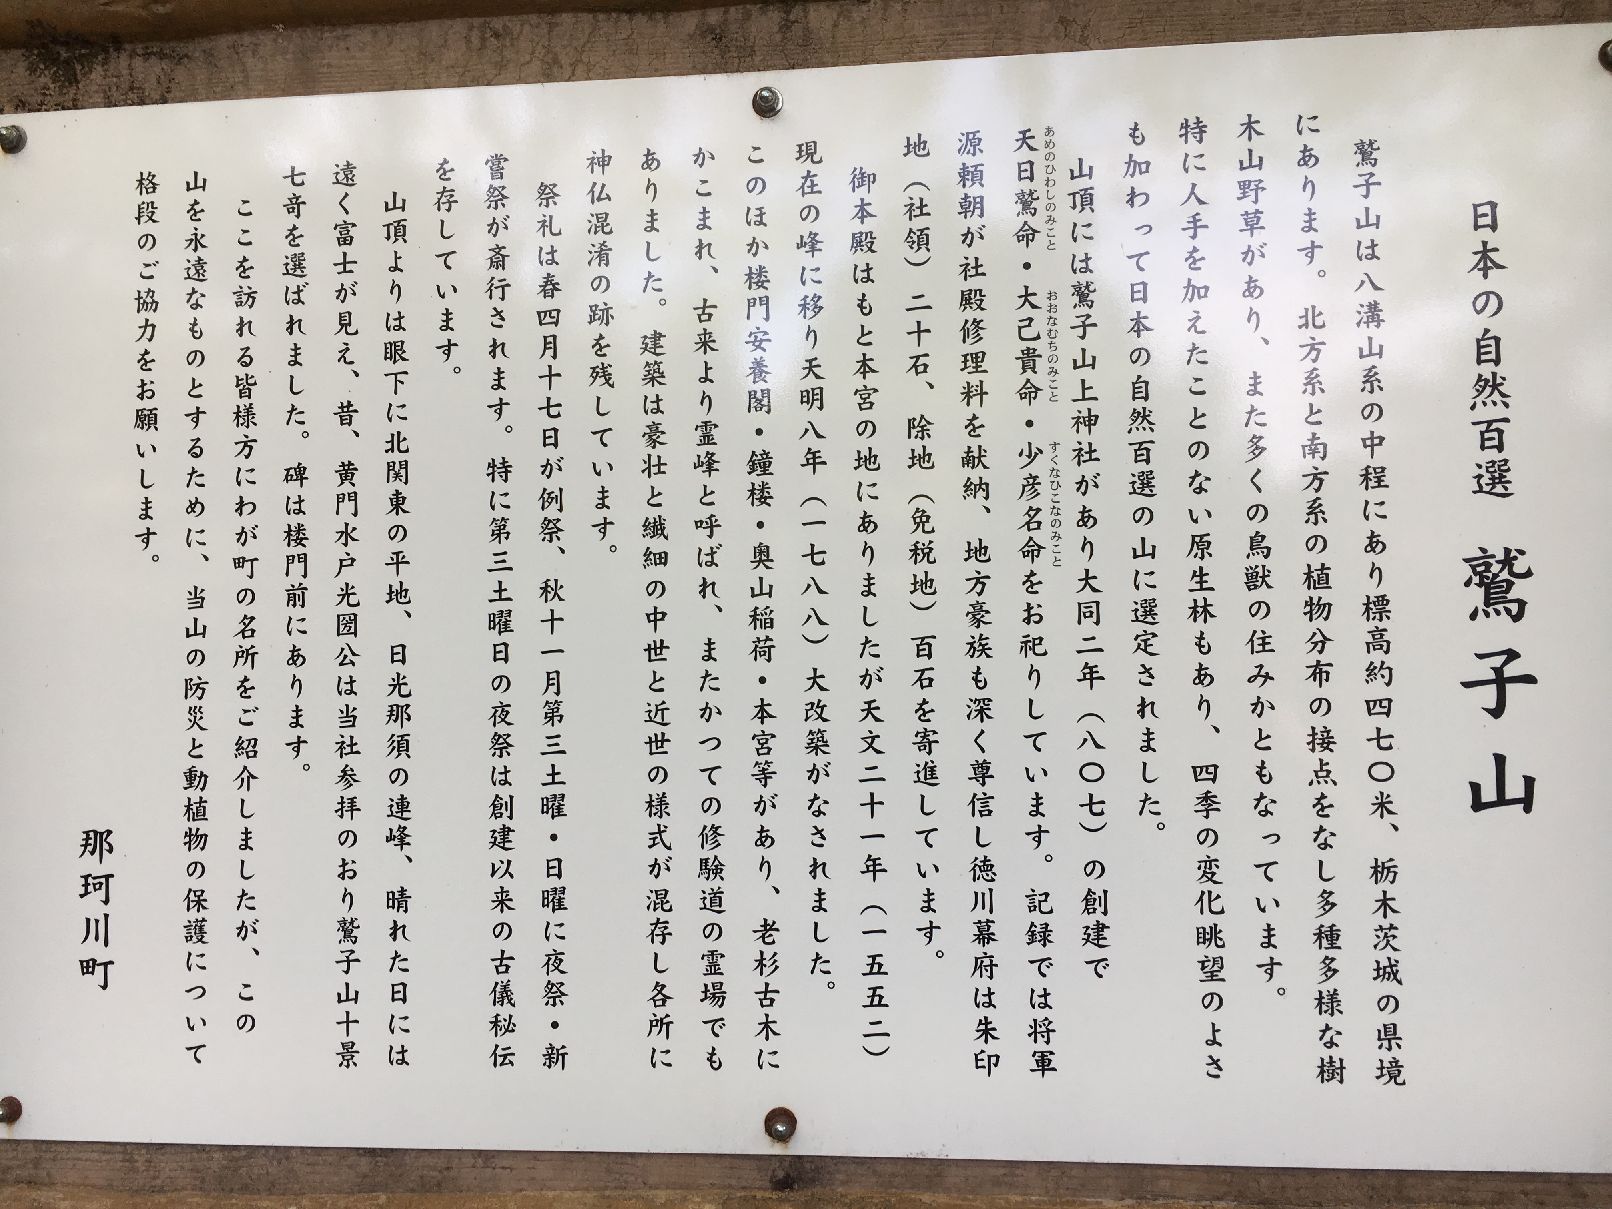 日本の自然百選 鷲子山
鷲子山は八溝山系の中程にあり標高約四七〇米、栃木茨城の県境
にあります。北方系と南方系の植物分布の接点をなし多種多様な樹
木山野草があり、また多くの鳥獣の住みかともなっています。
特に人手を加えたことのない原生林もあり、四季の変化眺望のよさ
も加わって日本の自然百選の山に選定されました。
山頂には鷲子山上神社があり大同二年（八〇七）の創建で
あめのひわしのみこと おおなむちのみこと すくなひこなのみこと
天日鷲命・大己貴命・少彦名命をお祀りしています。記録では将軍
源頼朝が社殿修理料を献納、地方豪族も深く尊信し徳川幕府は朱印
地（社領）二十石、除地（免税地）百石を寄進しています。
御本殿はもと本宮の地にありましたが天文二十一年（一五五二）
現在の峰に移り天明八年（一七八八）大改築がなされました。
このほか楼門安養閣・鐘楼・奥山稲荷・本宮等があり、老杉古木に
かこまれ、古来より霊峰と呼ばれ、またかつての修験道の霊場でも
ありました。建築は豪壮と繊細の中世と近世の様式が混存し各所に
神仏混淆の跡を残しています。
祭礼は春四月十七日が例祭、秋十一月第三土曜・日曜に夜祭・新
嘗祭が斎行されます。特に第三土曜日の夜祭は創建以来の古儀秘伝
を存しています。
山頂よりは眼下に北関東の平地、日光那須の連峰、晴れた日には
遠く富士が見え、昔、黄門水戸光圀公は当社参拝のおり鷲子山十景
七奇を選ばれました。碑は楼門前にあります。
ここを訪れる皆様方にわが町の名所をご紹介しましたが、この
山を永遠なものとするために、当山の防災と動植物の保護について
格段のご協力をお願いします。
那珂川町